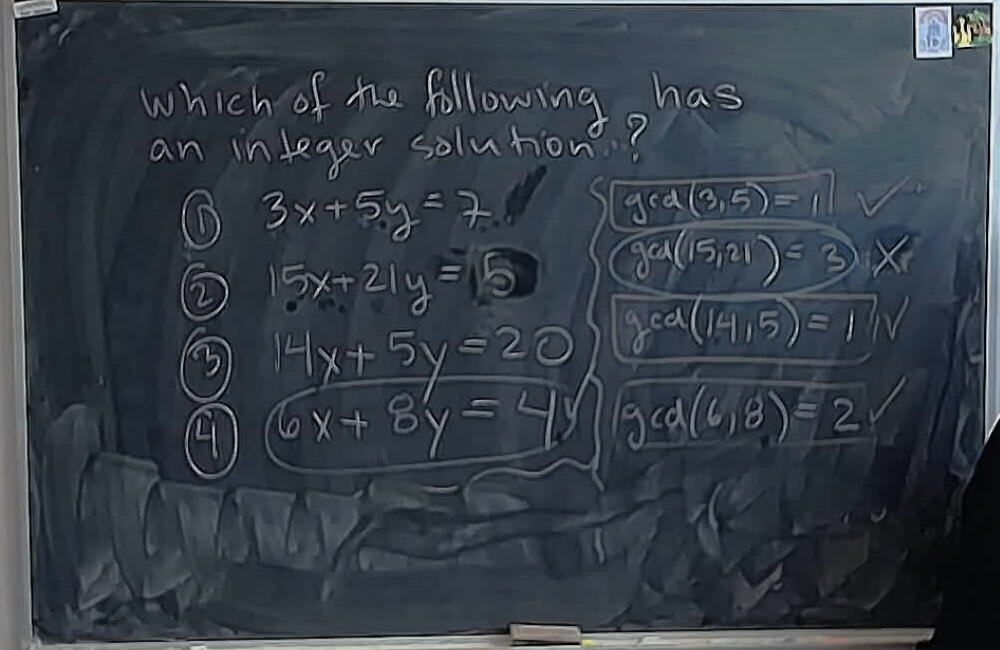 which of the following has
an integer solution?
① 3x+5y=7 gcd(3,5)=1 ✓
② 15x+21y=5 gcd(15,21)=3 X
③ 14x+5y=20 gcd(14,5)=1 ✓
④ 6x+8y=4 gcd(6,8)=2 ✓